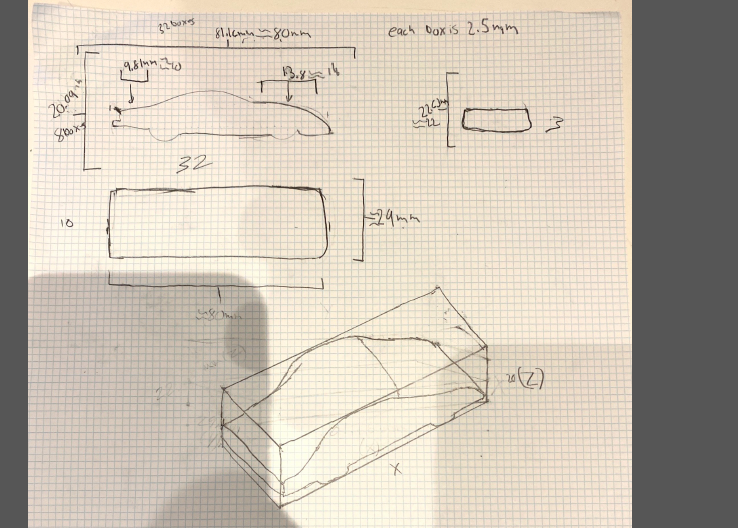 32 boxes
81.16mm ≈ 80mm
each box is 2.5mm
9.81mm ≈ 10
13.8 ≈ 14
20.09
8 boxes
≈22
3
32
10
≈29mm
≈80mm
20 (Z)
X